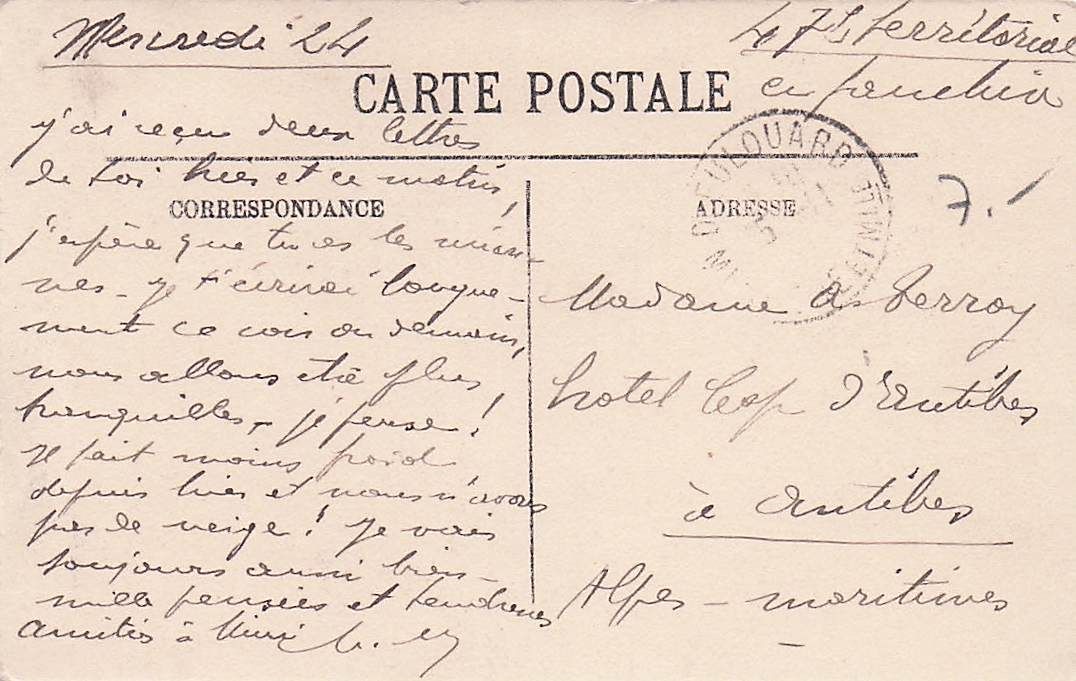 Mercredi 24
47e territorial
CARTE POSTALE
en
j'ai reçu deux lettres
de toi hier et ce matin,
CORRESPONDANCE
j'espère que tu as les mien-
nes - je t'écrirai longue-
ment ce soir ou demain,
nous allons être plus
tranquilles, je pense!
Il fait moins froid
depuis hier et nous n'avons
pas de neige! Je vais
toujours aussi bien -
mille pensées et tendresses
amitiés à
ADRESSE
DIEULOUARD
7.
Madame Perroy
hotel Cap d'Antibes
à Antibes
Alpes - maritimes